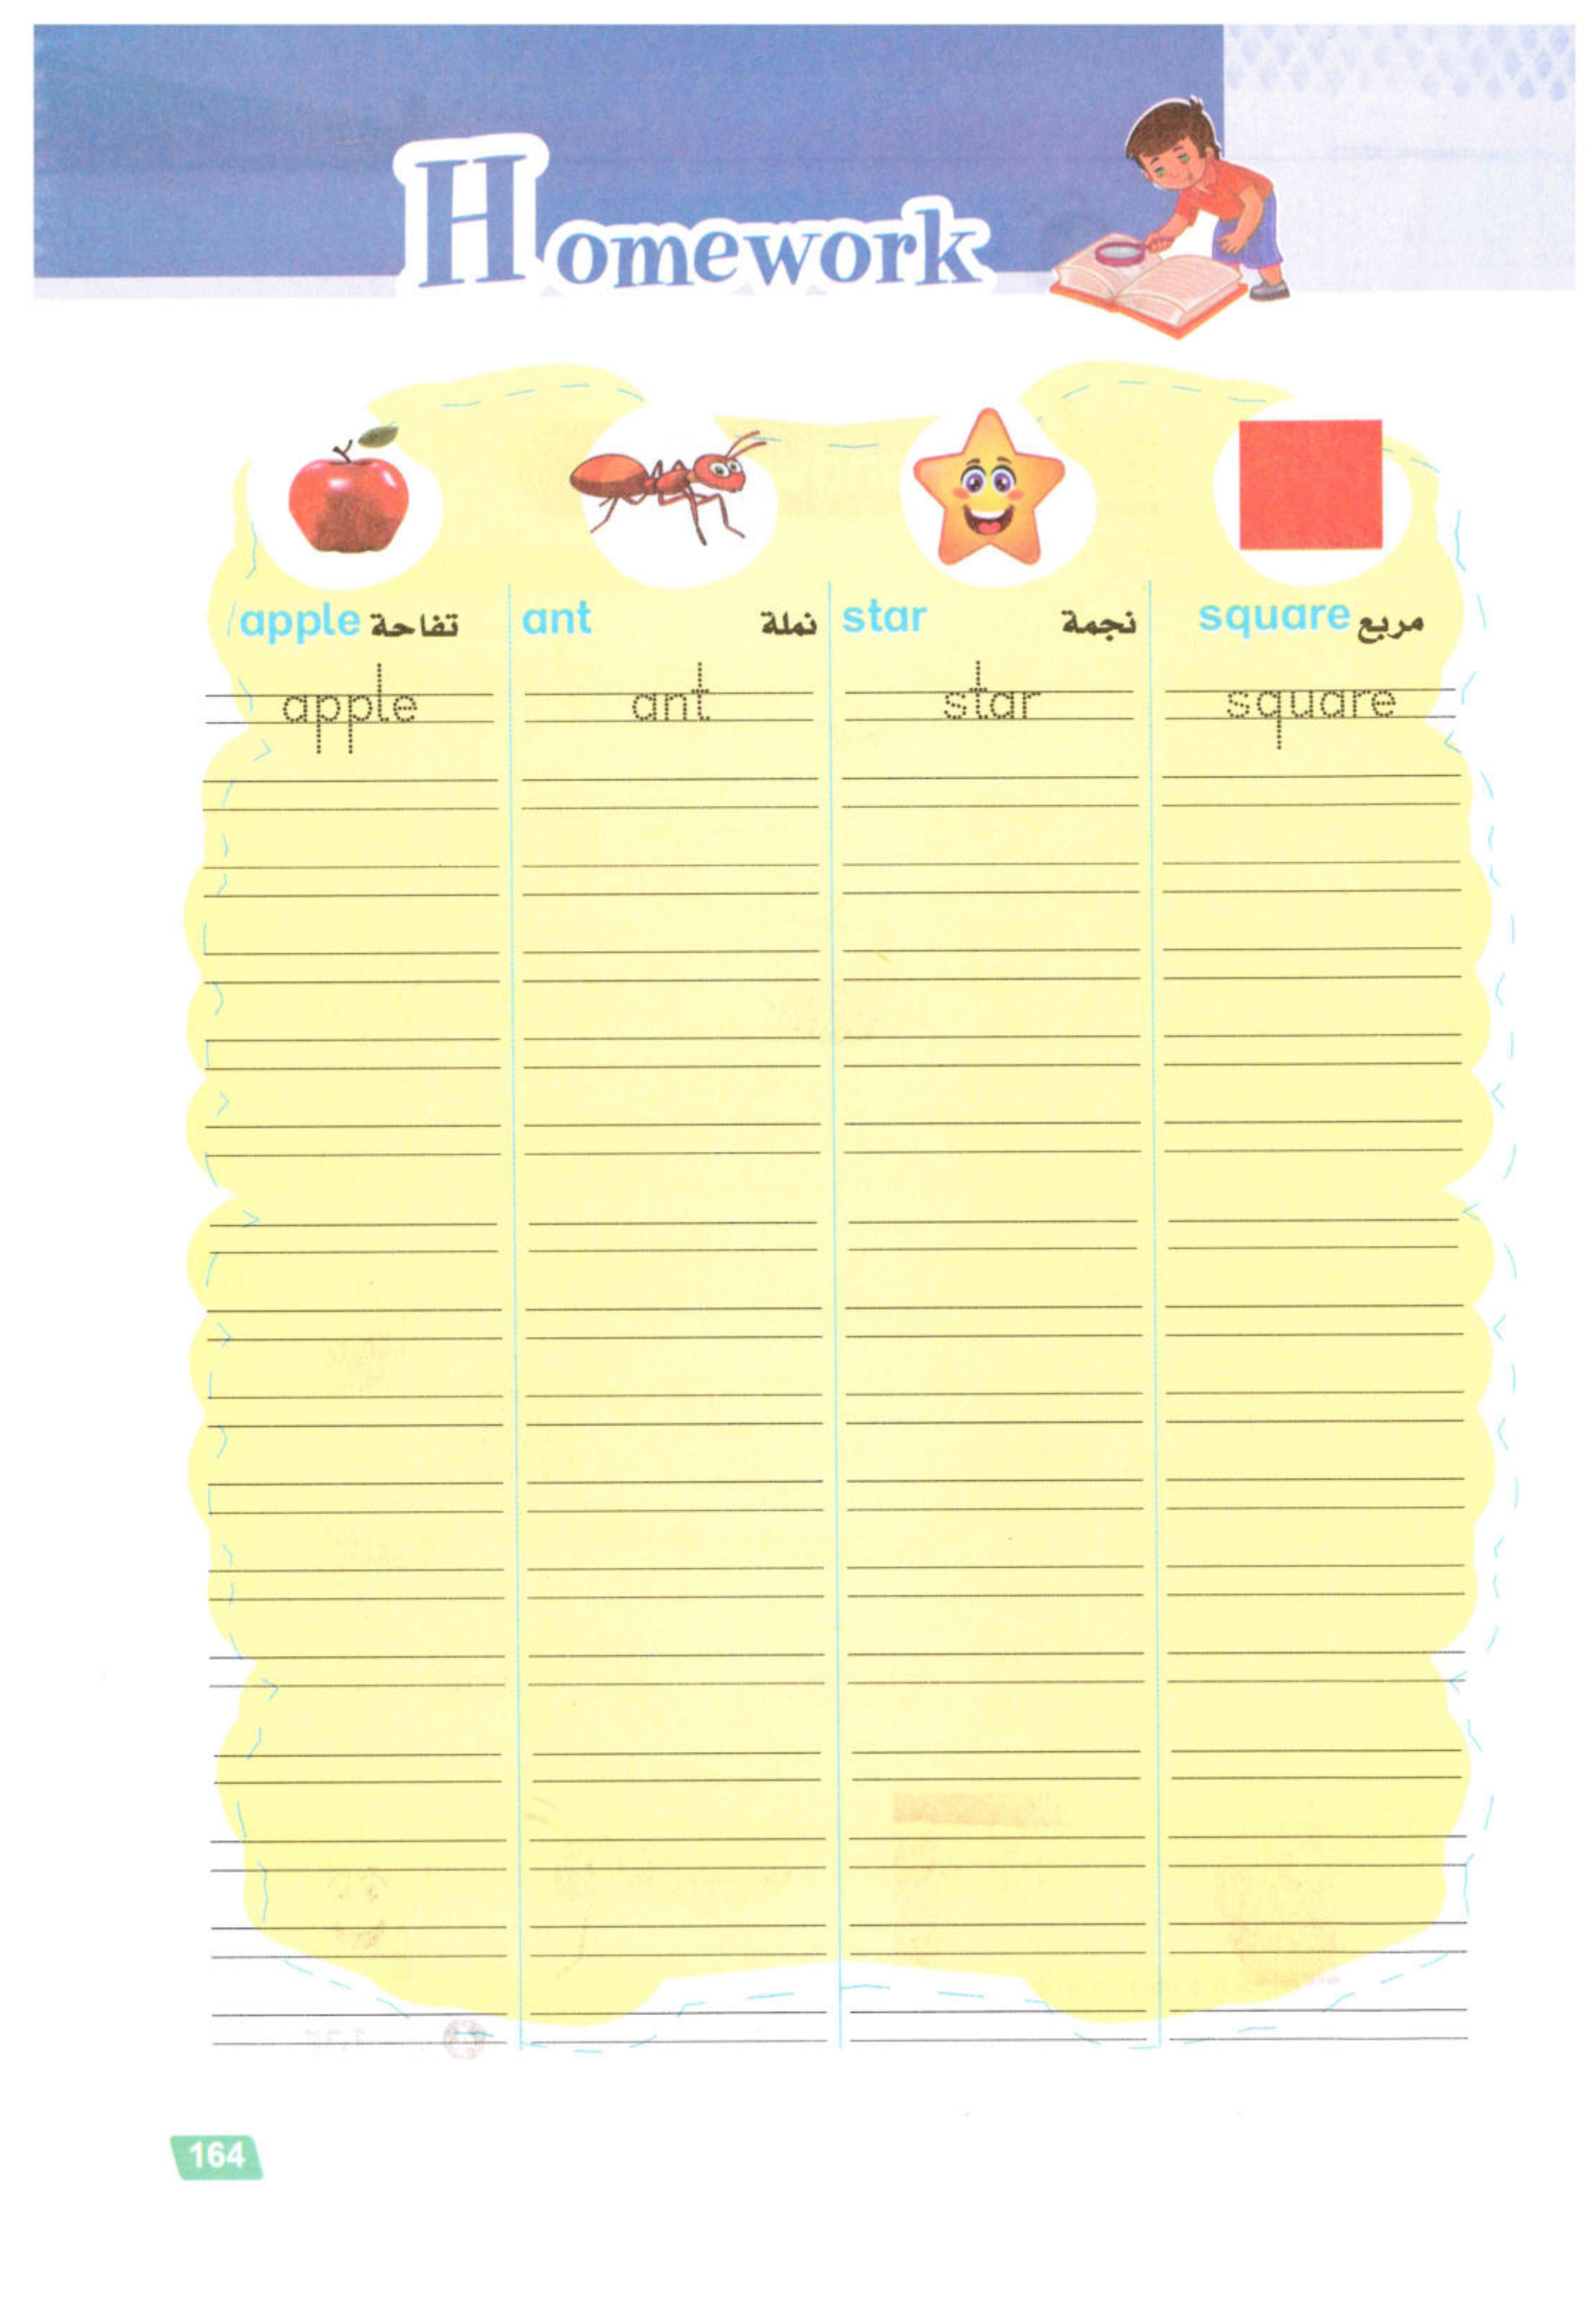 Homework
apple تفاحة ant نملة star نجمة square مربع
apple ant star square
164